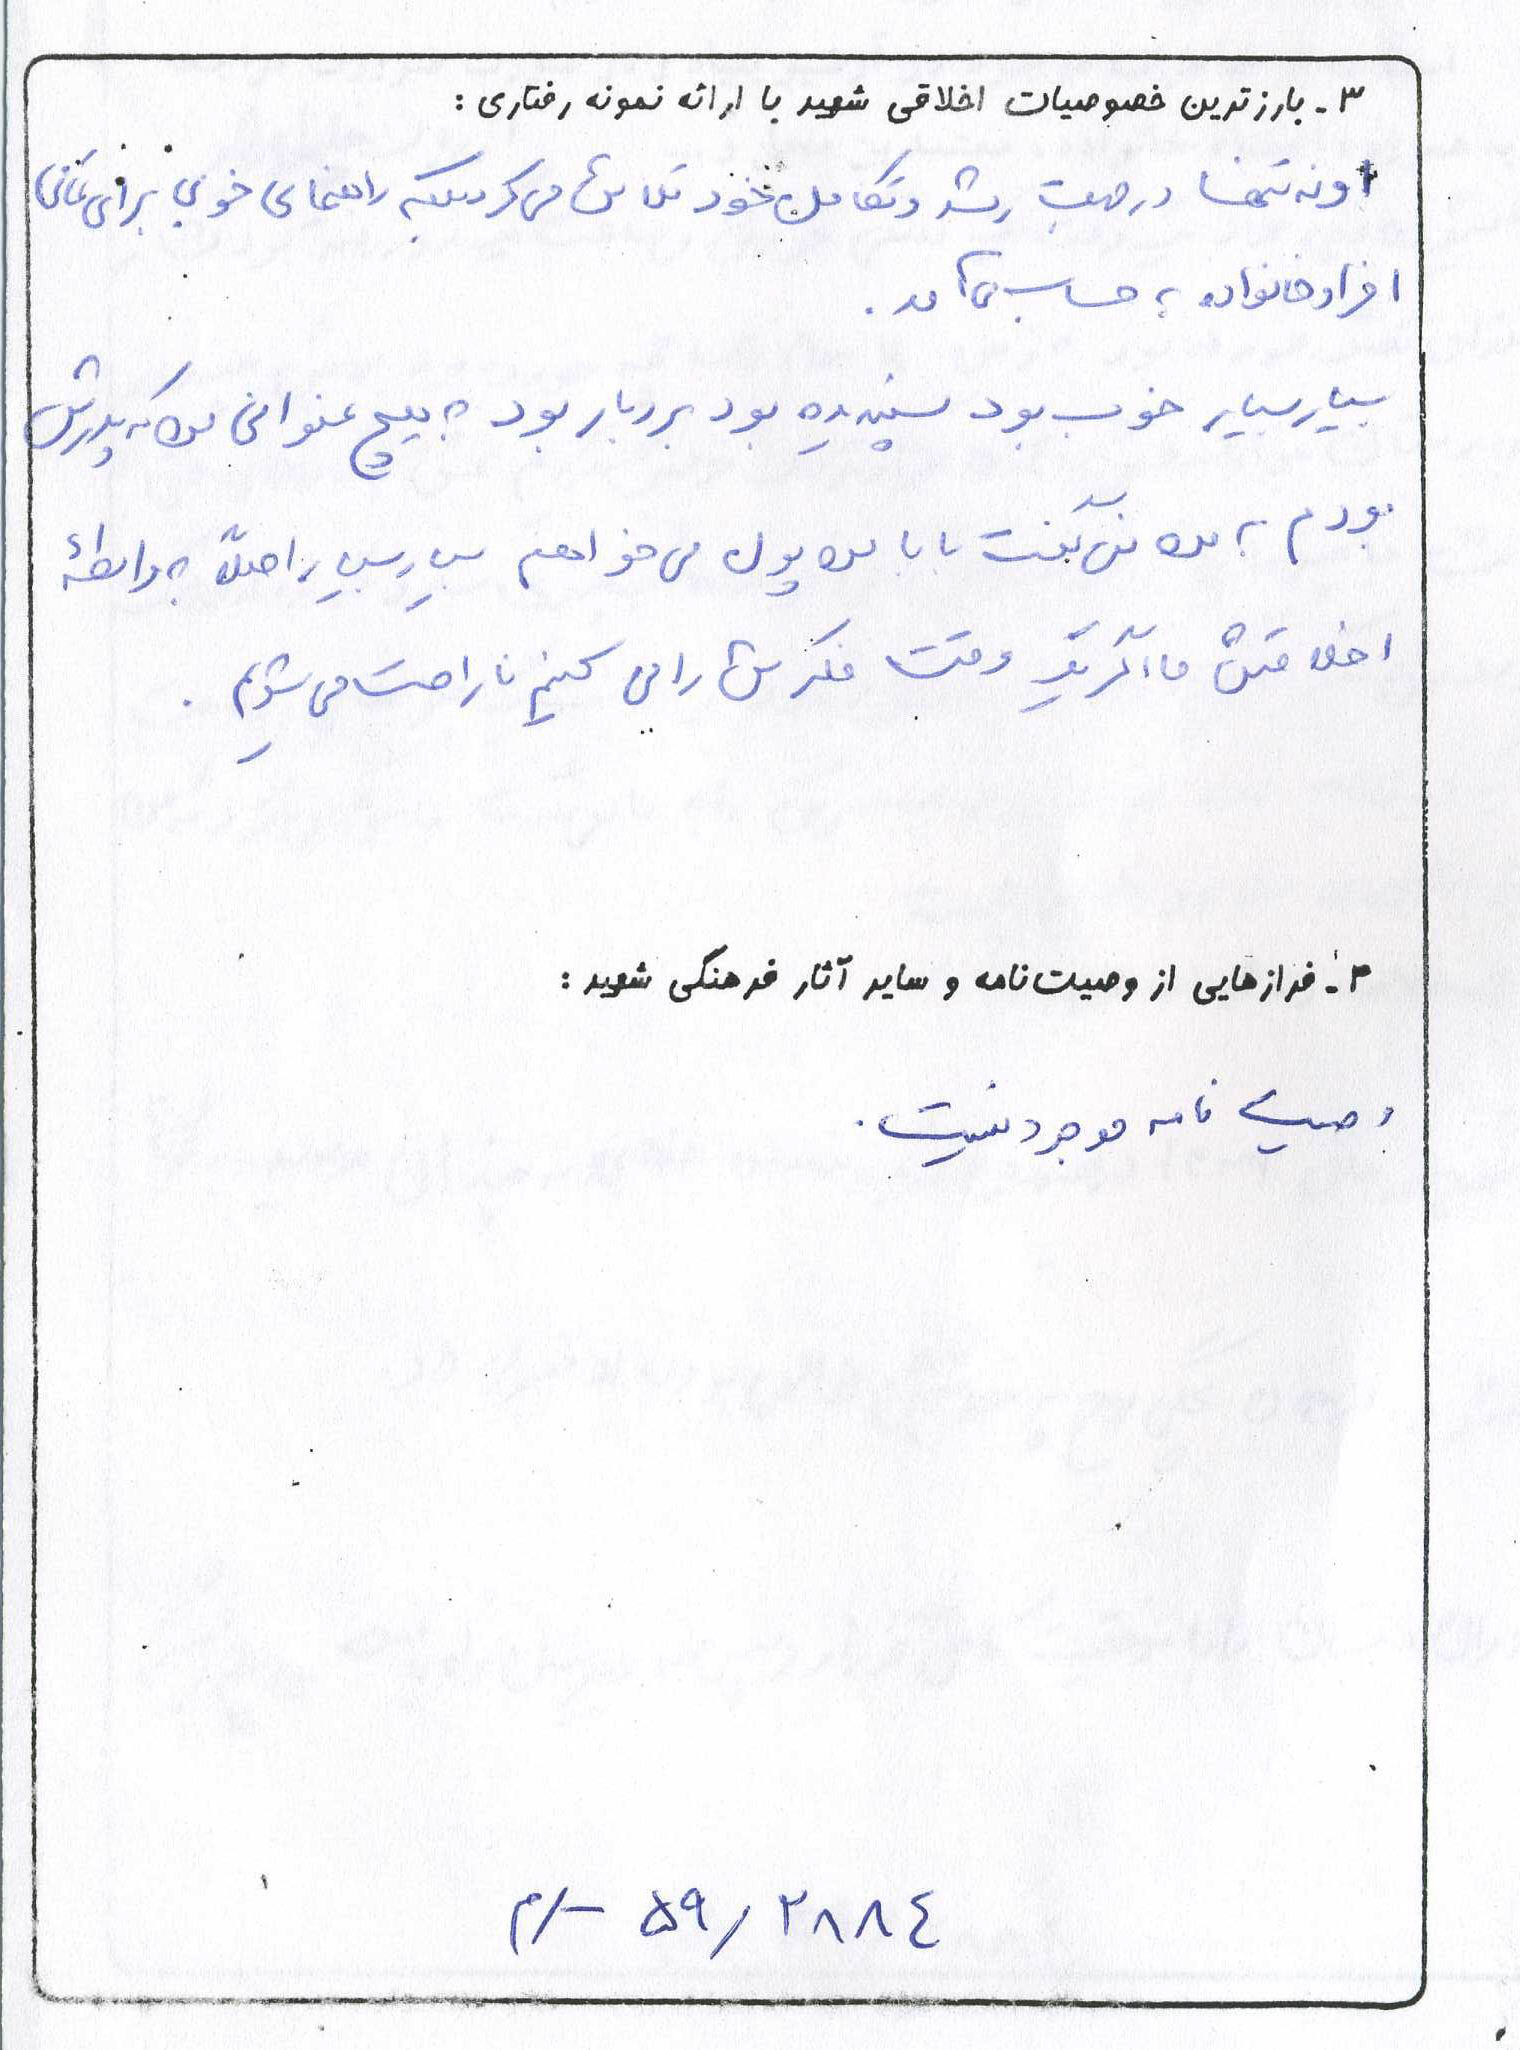 ۳ـ بارزترین خصوصیات اخلاقی شهید با ارائه نمونه رفتاری :
او نه تنها در جهت رشد و تکامل خود تلاش می کرد بلکه راهنمای خوبی برای تمامی
افراد خانواده به حساب می آمد .
بسیار بسیار خوب بود سنجیده بود بردبار بود به هیچ عنوانی من که پدرش
بودم به من نمی گفت بابا من پول می خواهم بسیار بسیار اصلاً به واسطهٔ
اخلاقش ما اگر وقت فکرش را می کنیم ناراحت می شویم .
۴ـ فرازهایی از وصیت‌نامه و سایر آثار فرهنگی شهید :
وصیت نامه موجود نیست .
۵۹/۲۸۸٤ م/-